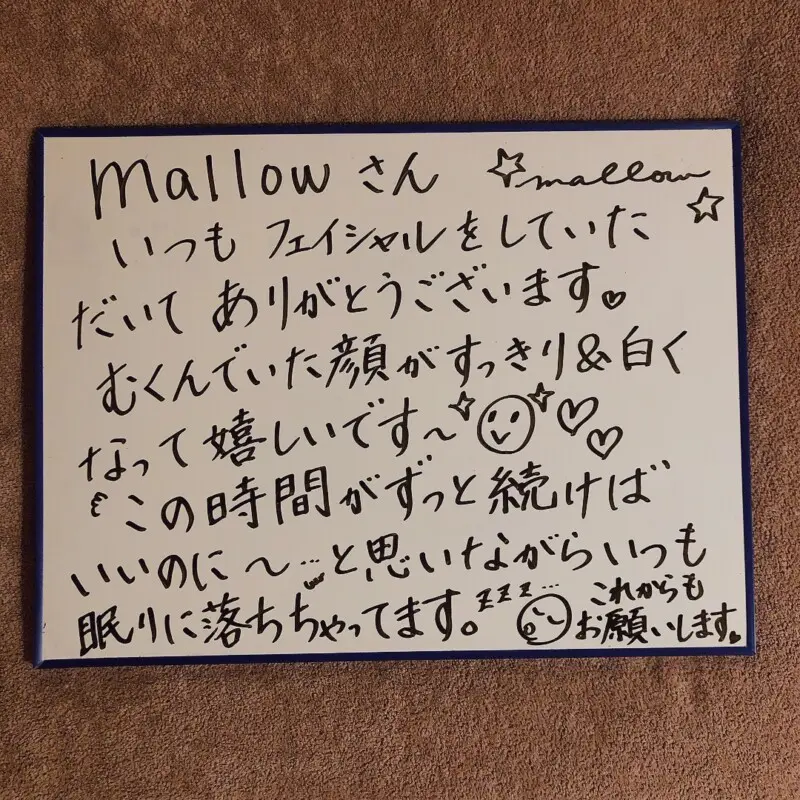 mallow さん ☆mallow☆
いつも フェイシャルをしていた
だいて ありがとうございます。♡
むくんでいた顔がすっきり&白く
なって嬉しいです〜
“この時間がずっと続けば
いいのに〜…”と思いながらいつも
眠りに落ちちゃってます。zzz…
これからも
お願いします。